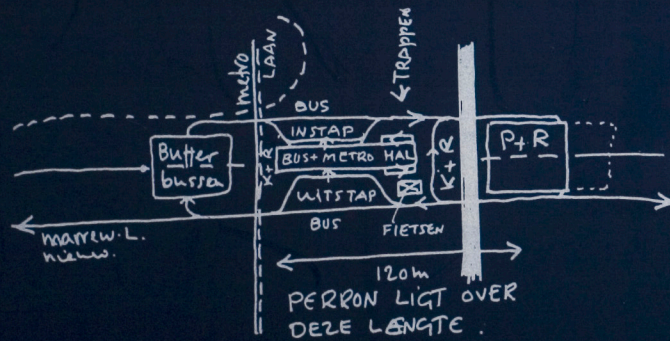 metro
LAAN
TRAPPEN
BUS
INSTAP
Buffer
bussen
K+R
BUS+METRO HAL
K+R
P+R
UITSTAP
BUS
FIETSEN
nieuw.
120m
PERRON LIGT OVER
DEZE LENGTE.